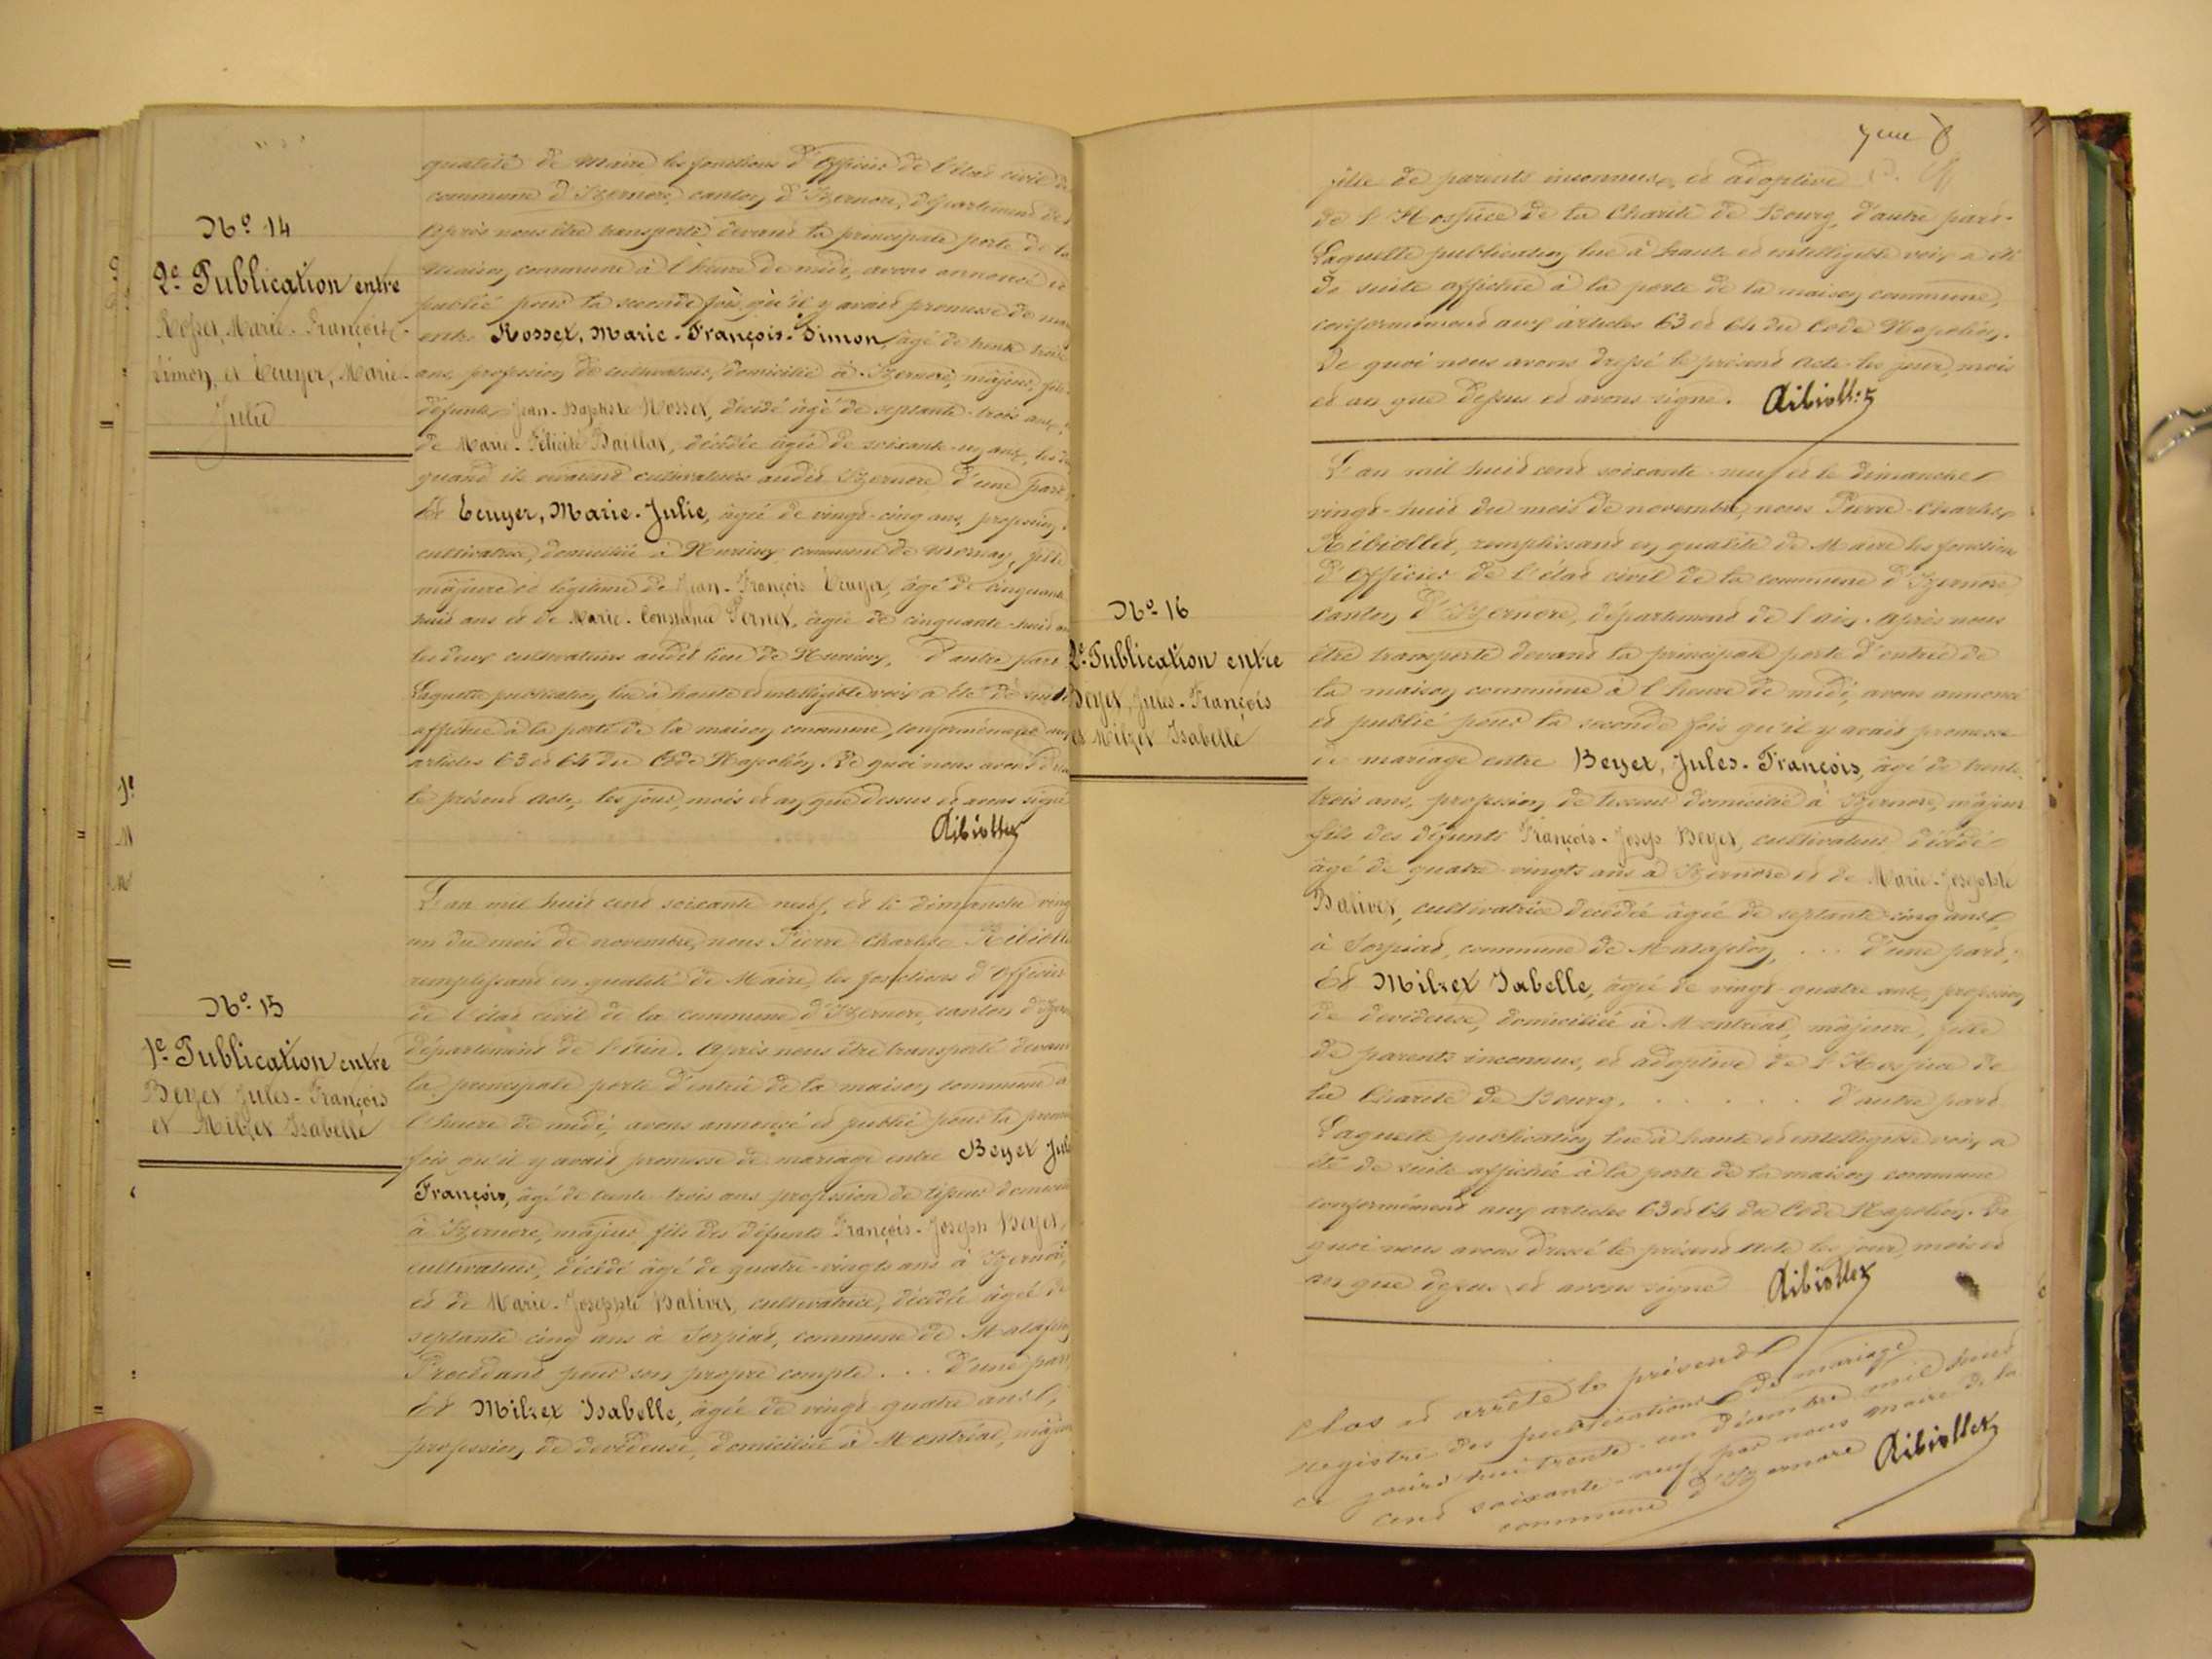 qualité de Maire les fonctions d'Officier de l'état civil de
commune d'Izernore, canton d'Izernore, département de
Après nous être transporté devant la principale porte de la
maison commune à l'heure de midi, avons annoncé et
publié pour la seconde fois qu'il y avait promesse de
entre Rosset, Marie-François-Simon, âgé de trente trois
ans, profession de cultivateur, domicilié à Izernore, majeur, fils
défunts Jean-Baptiste Rosset, décédé âgé de septante-trois ans,
de Marie-Félicité Baillat, décédée âgée de soixante-un ans, les
quand ils vivaient cultivateurs audit Izernore, d'une part
Et Ecuyer, Marie-Julie, âgée de vingt-cinq ans, profession
cultivatrice, domiciliée à commune de Mornay, fille
majeure et légitime de Jean-François Ecuyer, âgé de cinquante
huit ans et de Marie-Constance Pernet, âgée de cinquante-huit
les deux cultivateurs audit lieu de d'autre part
Laquelle publication lue à haute et intelligible voix a été de suite
affichée à la porte de la maison commune, conformément aux
articles 63 et 64 du Code Napoléon. De quoi nous avons
le présent acte, les jour, mois et an que dessus et avons signé
Ribiollet
No. 14
2e. Publication entre
Rosset, Marie-François-
Simon, et Ecuyer, Marie-
Julie
L'an mil huit cent soixante neuf, et le dimanche vingt
un du mois de novembre, nous Pierre Charles Ribiollet
remplissant en qualité de Maire, les fonctions d'Officier
de l'état civil de la commune d'Izernore, canton
département de l'Ain. Après nous être transporté devant
la principale porte d'entrée de la maison commune à
l'heure de midi, avons annoncé et publié pour la
fois qu'il y avait promesse de mariage entre Beyet
François, âgé de trente trois ans profession de tisseur
à Izernore, majeur, fils des défunts François-Joseph Beyet,
cultivateur, décédé âgé de quatre-vingts ans à Izernore,
et de Marie-Josephte Balivet, cultivatrice, décédée âgée de
septante cinq ans à commune de
Procédant pour son propre compte . . . d'une part
Et Milzet Isabelle, âgée de vingt quatre ans,
profession de devideuse, domiciliée à Montréal,
No. 15
1e. Publication entre
Beyet Jules-François
et Milzet Isabelle
7eme
fille de parents inconnus, et adoptive
de l'Hospice de la Charité de Bourg, d'autre part-
Laquelle publication lue à haute et intelligible voix a été
de suite affichée à la porte de la maison commune,
conformément aux articles 63 et 64 du Code Napoléon.
De quoi nous avons dressé le présent acte les jour, mois
et an que dessus et avons signé. Ribiollet
L'an mil huit cent soixante-neuf et le dimanche
vingt-huit du mois de novembre, nous Pierre-Charles
Ribiollet, remplissant en qualité de Maire les fonctions
d'Officier de l'état civil de la commune d'Izernore,
canton d'Izernore, département de l'ain. Après nous
être transporté devant la principale porte d'entrée de
la maison commune à l'heure de midi, avons annoncé
et publié pour la seconde fois qu'il y avait promesse
de mariage entre Beyet, Jules-François, âgé de trente
trois ans, profession de tisseur domicilié à Izernore, majeur
fils des défunts François-Josep Beyet, cultivateur décédé
âgé de quatre-vingts ans à Izernore et de Marie-Josephte
Balivet, cultivatrice décédée âgée de septante-cinq ans,
à commune de . . . d'une part,
Et Milzet Isabelle, âgée de vingt-quatre ans, profession
de devideuse, domiciliée à Montréal, majeure, fille
de parents inconnus, et adoptive de l'Hospice de
la Charité de Bourg. . . . . . d'autre part
Laquelle publication lue à haute et intelligible voix, a
été de suite affichée à la porte de la maison commune
conformément aux articles 63 et 64 du Code Napoléon. De
quoi nous avons dressé le présent acte les jour, mois et
an que dessus, et avons signé Ribiollet
No. 16
2e. Publication entre
Beyet, Jules-François
et Milzet Isabelle
Clos et arrêté le présent
registre des publications de mariage
ce jourd'hui trente-un décembre mil huit
cent soixante-neuf par nous maire de la
commune d'Izernore Ribiollet